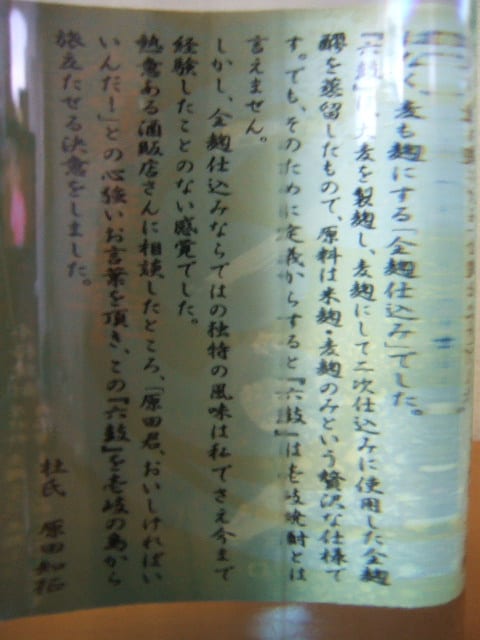 はなく、麦も麹にする「全麹仕込み」でした。
『六鼓』は、大麦を製麹し、麦麹にして二次仕込みに使用した全麹
醪を蒸留したもので、原料は米麹・麦麹のみという贅沢な仕様で
す。でも、そのために定義からすると『六鼓』は壱岐焼酎とは
言えません。
しかし、全麹仕込みならではの独特の風味は私でさえ今まで
経験したことのない感覚でした。
熱意ある酒販店さんに相談したところ、「原田君、おいしければい
いんだ！」との心強いお言葉を頂き、この『六鼓』を壱岐の島から
旅立たせる決意をしました。
杜氏 原田知征